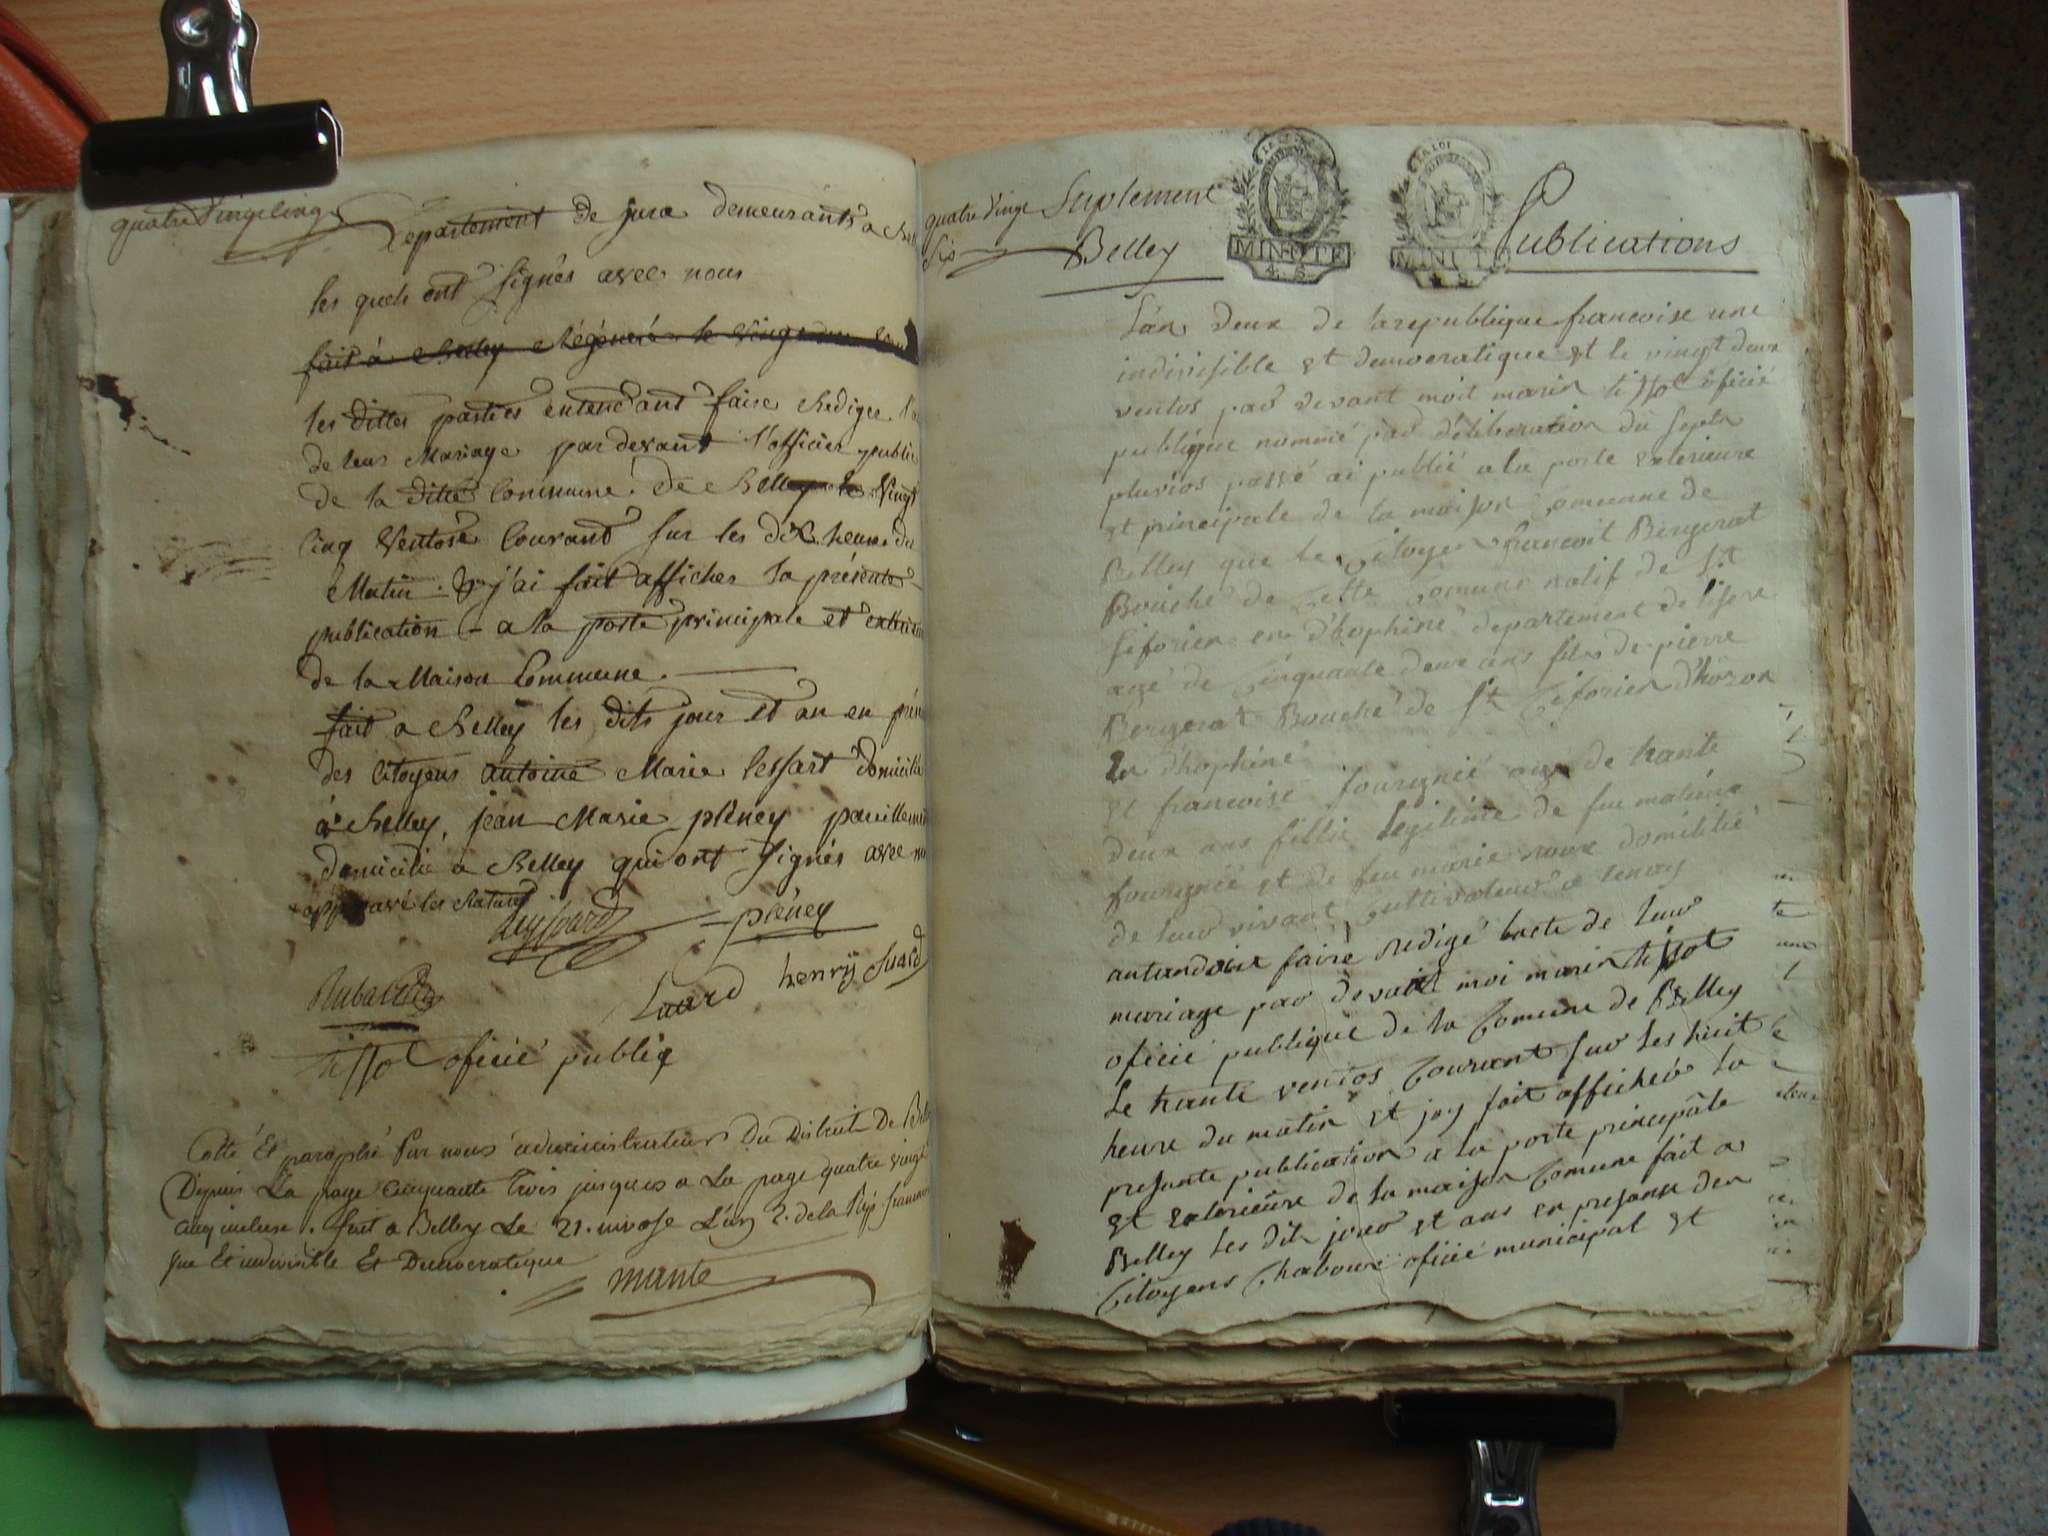 quatre vingt cinq
Departement de jura demeurants a
les quels ont signés avec nous
fait à Belley Régénéré le vingt
les dittes parties entendant faire Rediger
de leur Mariage par devant l'officier public
de la ditte Commune de Belley le vingt
cinq Ventose Courant sur les dix heures du
Matin. & j'ai fait afficher la présente
publication - a la porte principale et
de la Maison Commune.
fait a Belley les dits jour et an en
des Citoyens antoine Marie domicilié
à Belley, jean Marie pleney pareillement
domicilié a Belley qui ont signés avec
approuvé les
pleney
henry Suard
Suard
tissot oficié publiq
Cotté Et paraphé Par nous administrateur Du District De
Depuis La page cinquante trois jusques a La page quatre vingt
cinq incluse. fait a Belley Le 21. nivose L'an 2. de la Rép.
Une Et indivisible Et Democratique
mante
quatre vingt
Six
Suplement
Belley
LA LOI
MINUTE
4. S.
MINUTE
Publications
L'an deux de la republique francoise une
indivisible et democratique et le vingt deux
ventos par devant moit marin tissot oficié
publique nommé par déliberation du septe
pluvios passé ai publié a la porte exterieure
et principale de la maison Comunne de
Belley que le Citoyen francoit Bergerat
Bouché de Cette Comune natif de St
Siforien en d'hophiné departement de lisere
agé de Cinquante deux ans fils de pierre
Bergerat Bouché de St Ciforien d'hozon
En d'hophiné
et francoise fourgnié age de trante
deux ans fillie legitime de feu
fourgnié et de feu marie domicilié
de leur vivant Cultivateur a
antandoit faire redigé lacte de leur
mariage par devant moi marin tissot
oficié publique de la Comune de Belley
Le trante ventos Courant sur les huit
heure du matin et jay fait afficheér la
presante publication a la porte principâle
et exterieure de la maison Comune fait a
Belley les dit jour et ans en presanse des
Citoyens Chaboux oficié municipal et